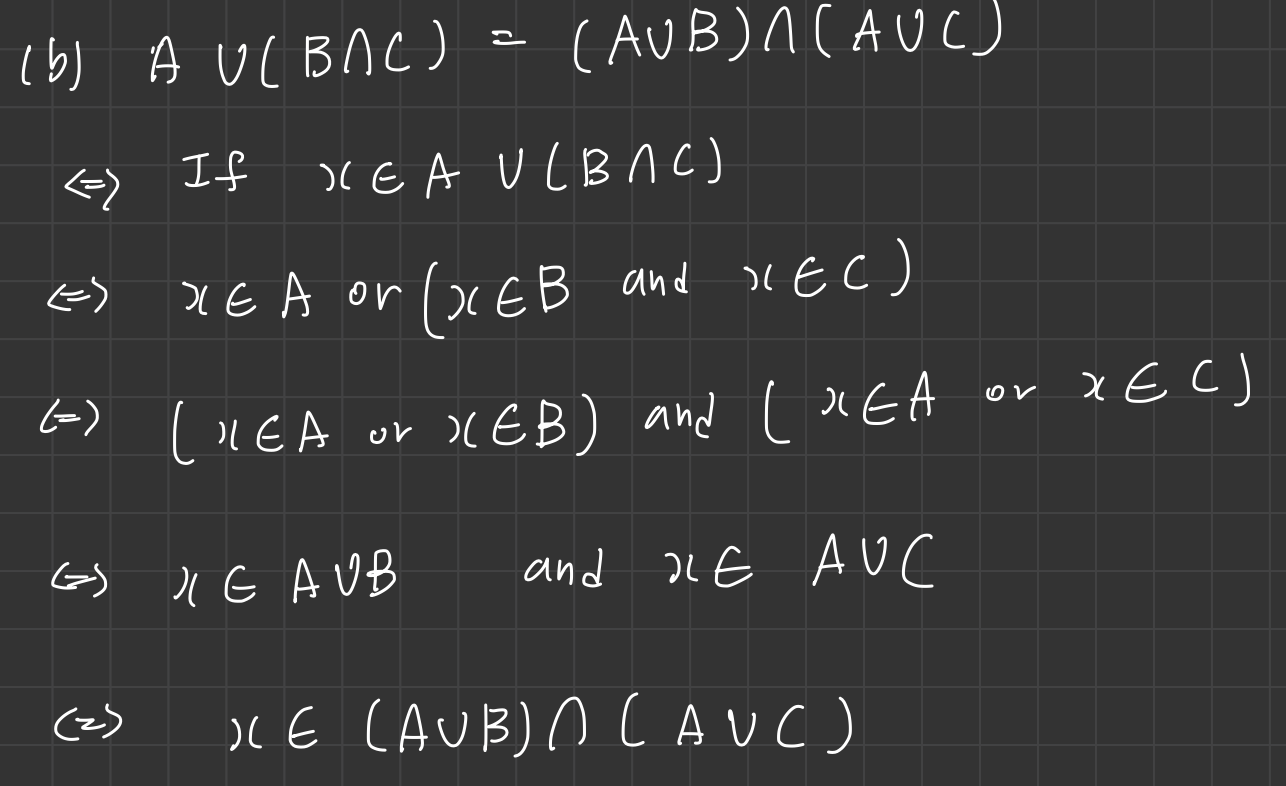 (b) A ∪ (B∩C) = (A∪B)∩(A∪C)
⇔ If x∈A ∪ (B∩C)
⇔ x∈A or (x∈B and x∈C)
⇔ (x∈A or x∈B) and (x∈A or x∈C)
⇔ x∈A∪B and x∈A∪C
⇔ x∈(A∪B)∩(A∪C)